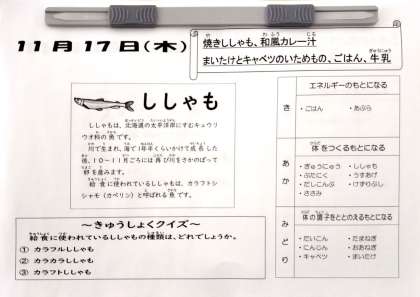 11月17日(木)
焼きししゃも、和風カレー汁
まいたけとキャベツのいためもの、ごはん、牛乳
ししゃも
ししゃもは、北海道の太平洋岸にすむキュウリ
ウオ科の魚です。
川で生まれ、海で1年半くらいかけて成長した
後、10～11月ごろには再び川をさかのぼって
卵を産みます。
給食に使われているししゃもは、カラフトシ
シャモ(カペリン)と呼ばれる魚です。
～きゅうしょくクイズ～
給食に使われているししゃもの種類は、どれでしょうか。
① カラフルししゃも
② カラカラししゃも
③ カラフトししゃも
き
エネルギーのもとになる
・ごはん ・あぶら
あか
体をつくるもとになる
・ぎゅうにゅう ・ししゃも
・ぶたにく ・うすあげ
・だしこんぶ ・けずりぶし
・ささみ
みどり
体の調子をととのえるもとになる
・だいこん ・たまねぎ
・にんじん ・おおねぎ
・キャベツ ・まいたけ